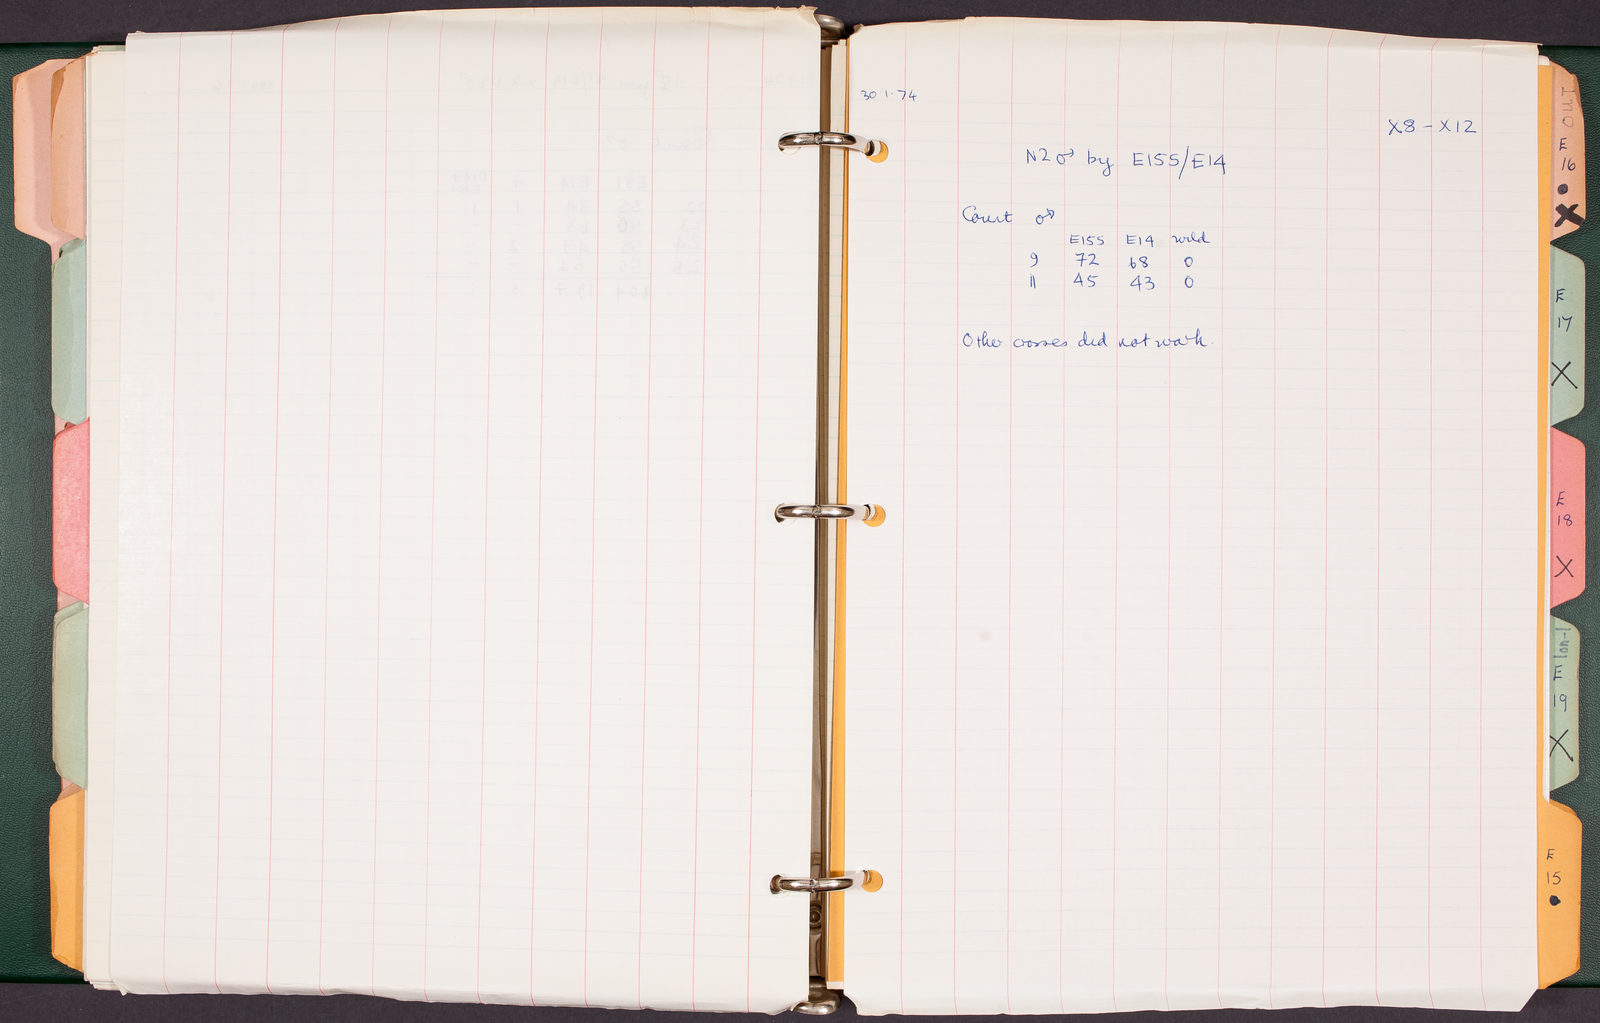 30.1.74
X8 - X12
N2 ♂ by E155/E14
Count ♂
E155 E14 wild
9 72 68 0
11 45 43 0
Other crosses did not work.
E
16
X
E
17
X
E
18
X
lon-1
E
19
X
E
15